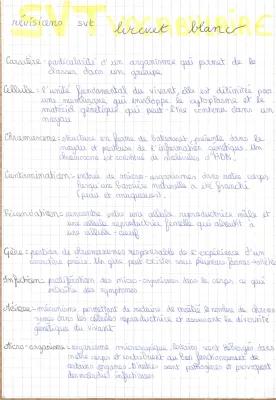 SVT VOCABULAIRE
révisions svt brevet blanc
Caractère : particularité d'un organisme qui permet de le
classer dans un groupe
Cellule : l'unité fondamental du vivant, elle est délimitée par
une membrane qui enveloppe le cytoplasme et le
matériel génétique qui peut être contenu dans un
noyau
Chromosome : structure en forme de bâtonnet, présente dans le
noyau et porteuse de l'information génétique. Un
chromosome est constitué de molécules d'ADN.
Contamination : entrée de micro-organismes dans notre corps
lorsqu'une barrière naturelle a été franchie
(peau et muqueuses).
Fécondation : rencontre entre une cellule reproductrice mâle et
une cellule reproductrice femelle qui aboutit à
une cellule-oeuf
Gène : portion de chromosome responsable de
caractère précis. Un gène peut exister sous plusieurs formes
Infection : prolifération des micro-organismes dans le corps ce qui
entraîne des symptômes
Méiose : mécanisme permettant de réduire de moitié le nombre de chromo
somes dans les cellules reproductrices et assurant la diversité
génétique du vivant
Micro-organisme : organisme microscopique. Certains sont hébergés dans
notre corps et contribuent au bon fonctionnement de
certains organes. D'autres sont pathogènes et provoquent
des maladies infectieuses